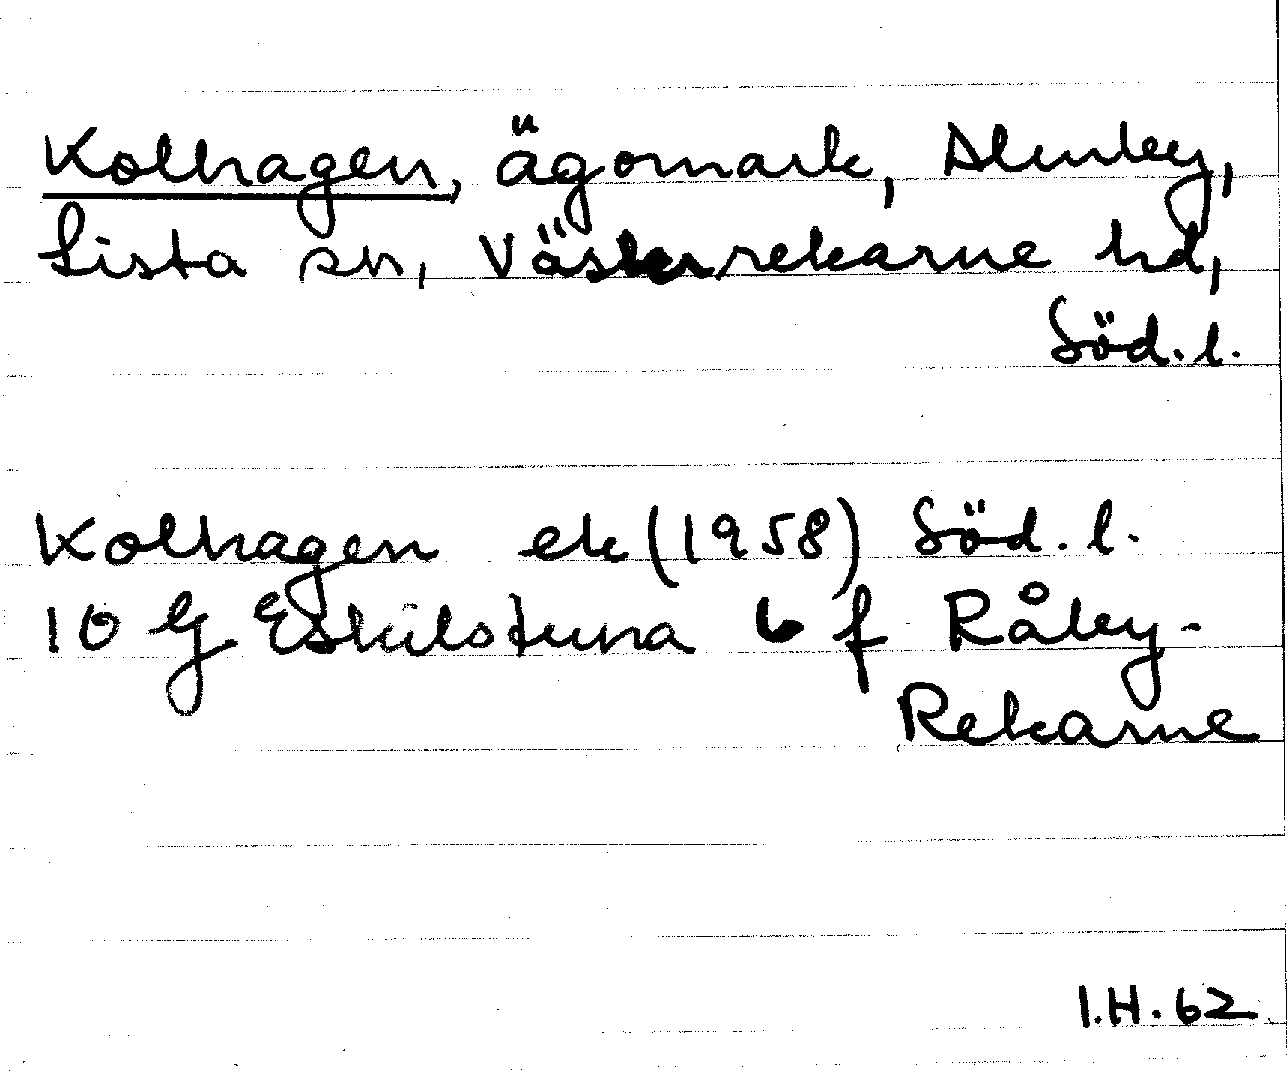 Kolhagen, ägomark, Almby,
Lista sn, Västerrekarne hd,
Söd.l.
Kolhagen ek (1958) Söd.l.
10 G Eskilstuna 6 f Råby-
Rekarne
I.H. 62